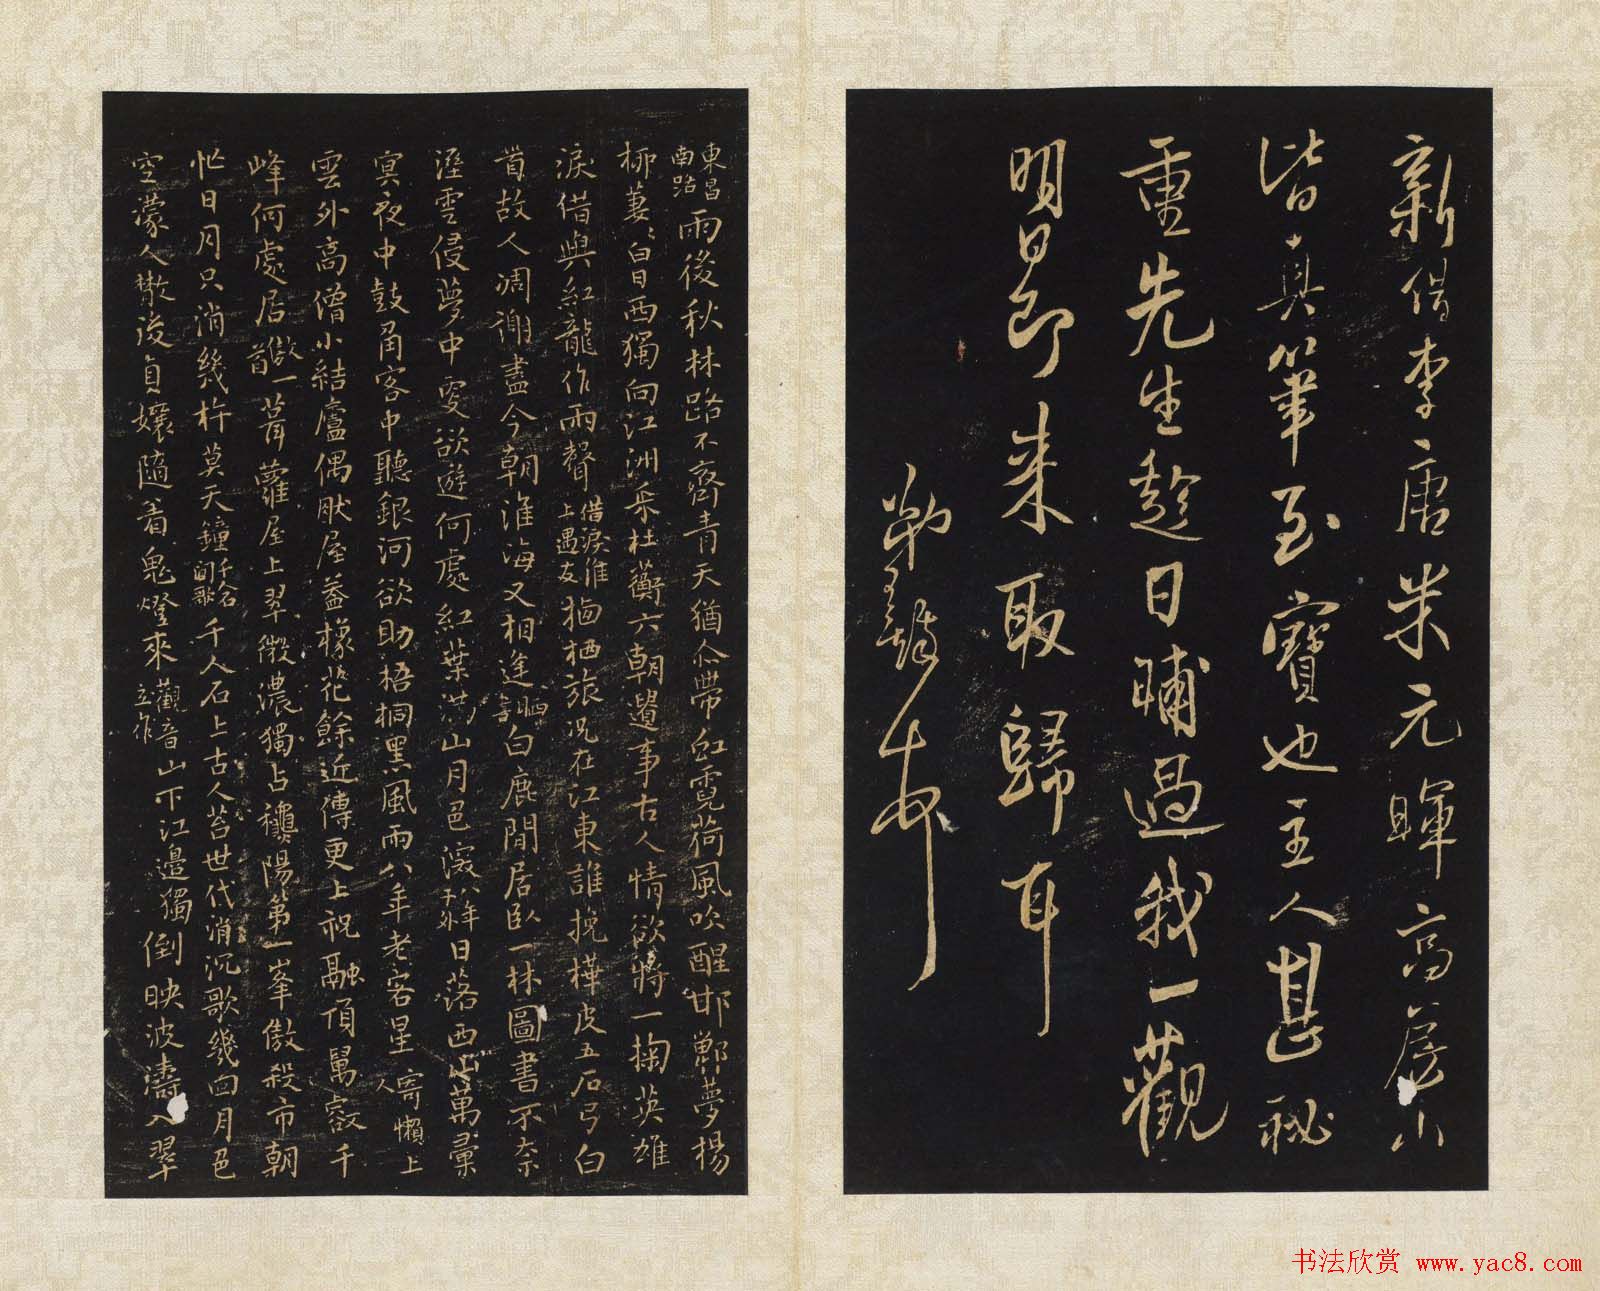 新借李唐米元暉高房山
皆真筆至寶也主人甚秘
重先生趁日晡過我一觀
明日即來取歸耳
弟
東昌南路
雨後秋林路不齊青天猶亦帶虹霓荷風吹醒邯鄲夢楊
柳萋〻白日西獨向江洲采杜蘅六朝遺事古人情欲將一掬英雄
淚借與紅龍作雨聲 借淚淮上遇友 栖旅況在江東誰挽樺皮五石弓白
首故人凋謝盡今朝淮海又相逢 白鹿閒居臥一林圖書不奈
溼雲侵夢中欲遊何處紅葉滿山月色 日落西 萬彙
冥夜中鼓角客中聽銀河欲助梧桐黑風雨八年老客星 寄懶上人
雲外高僧小結廬偶眠屋蓋橡花餘近傳更上祝融頂萬壑千
峰何處居 一茸蘿屋上翠微濃獨占 陽第一峯傲殺市朝
忙日月只消幾杵莫天鐘 千人石上古人苔世代消沉歌幾回月色
空濛人散後貞孃隨着鬼燈來 觀音山下江邊獨立作 倒映波濤入翠
书法欣赏 www.yac8.com